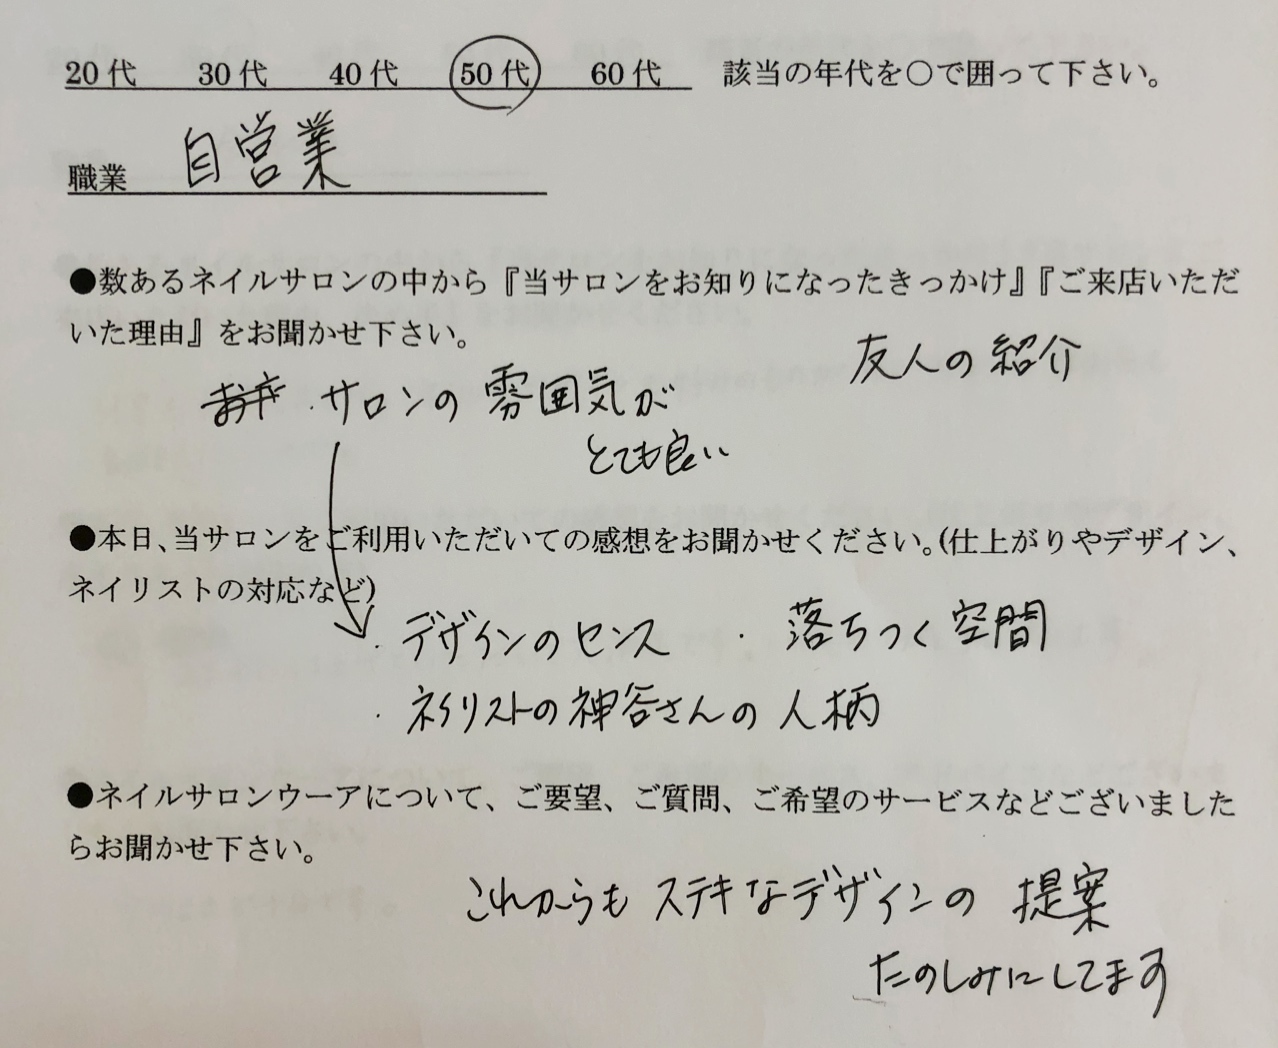 20代 30代 40代 50代 60代 該当の年代を○で囲って下さい。
職業 自営業
●数あるネイルサロンの中から『当サロンをお知りになったきっかけ』『ご来店いただ
いた理由』をお聞かせ下さい。
友人の紹介
・サロンの雰囲気が
とても良い
●本日、当サロンをご利用いただいての感想をお聞かせください。(仕上がりやデザイン、
ネイリストの対応など)
・デザインのセンス ・落ちつく空間
・ネイリストの神谷さんの人柄
●ネイルサロンウーアについて、ご要望、ご質問、ご希望のサービスなどございました
らお聞かせ下さい。
これからもステキなデザインの提案
たのしみにしてます